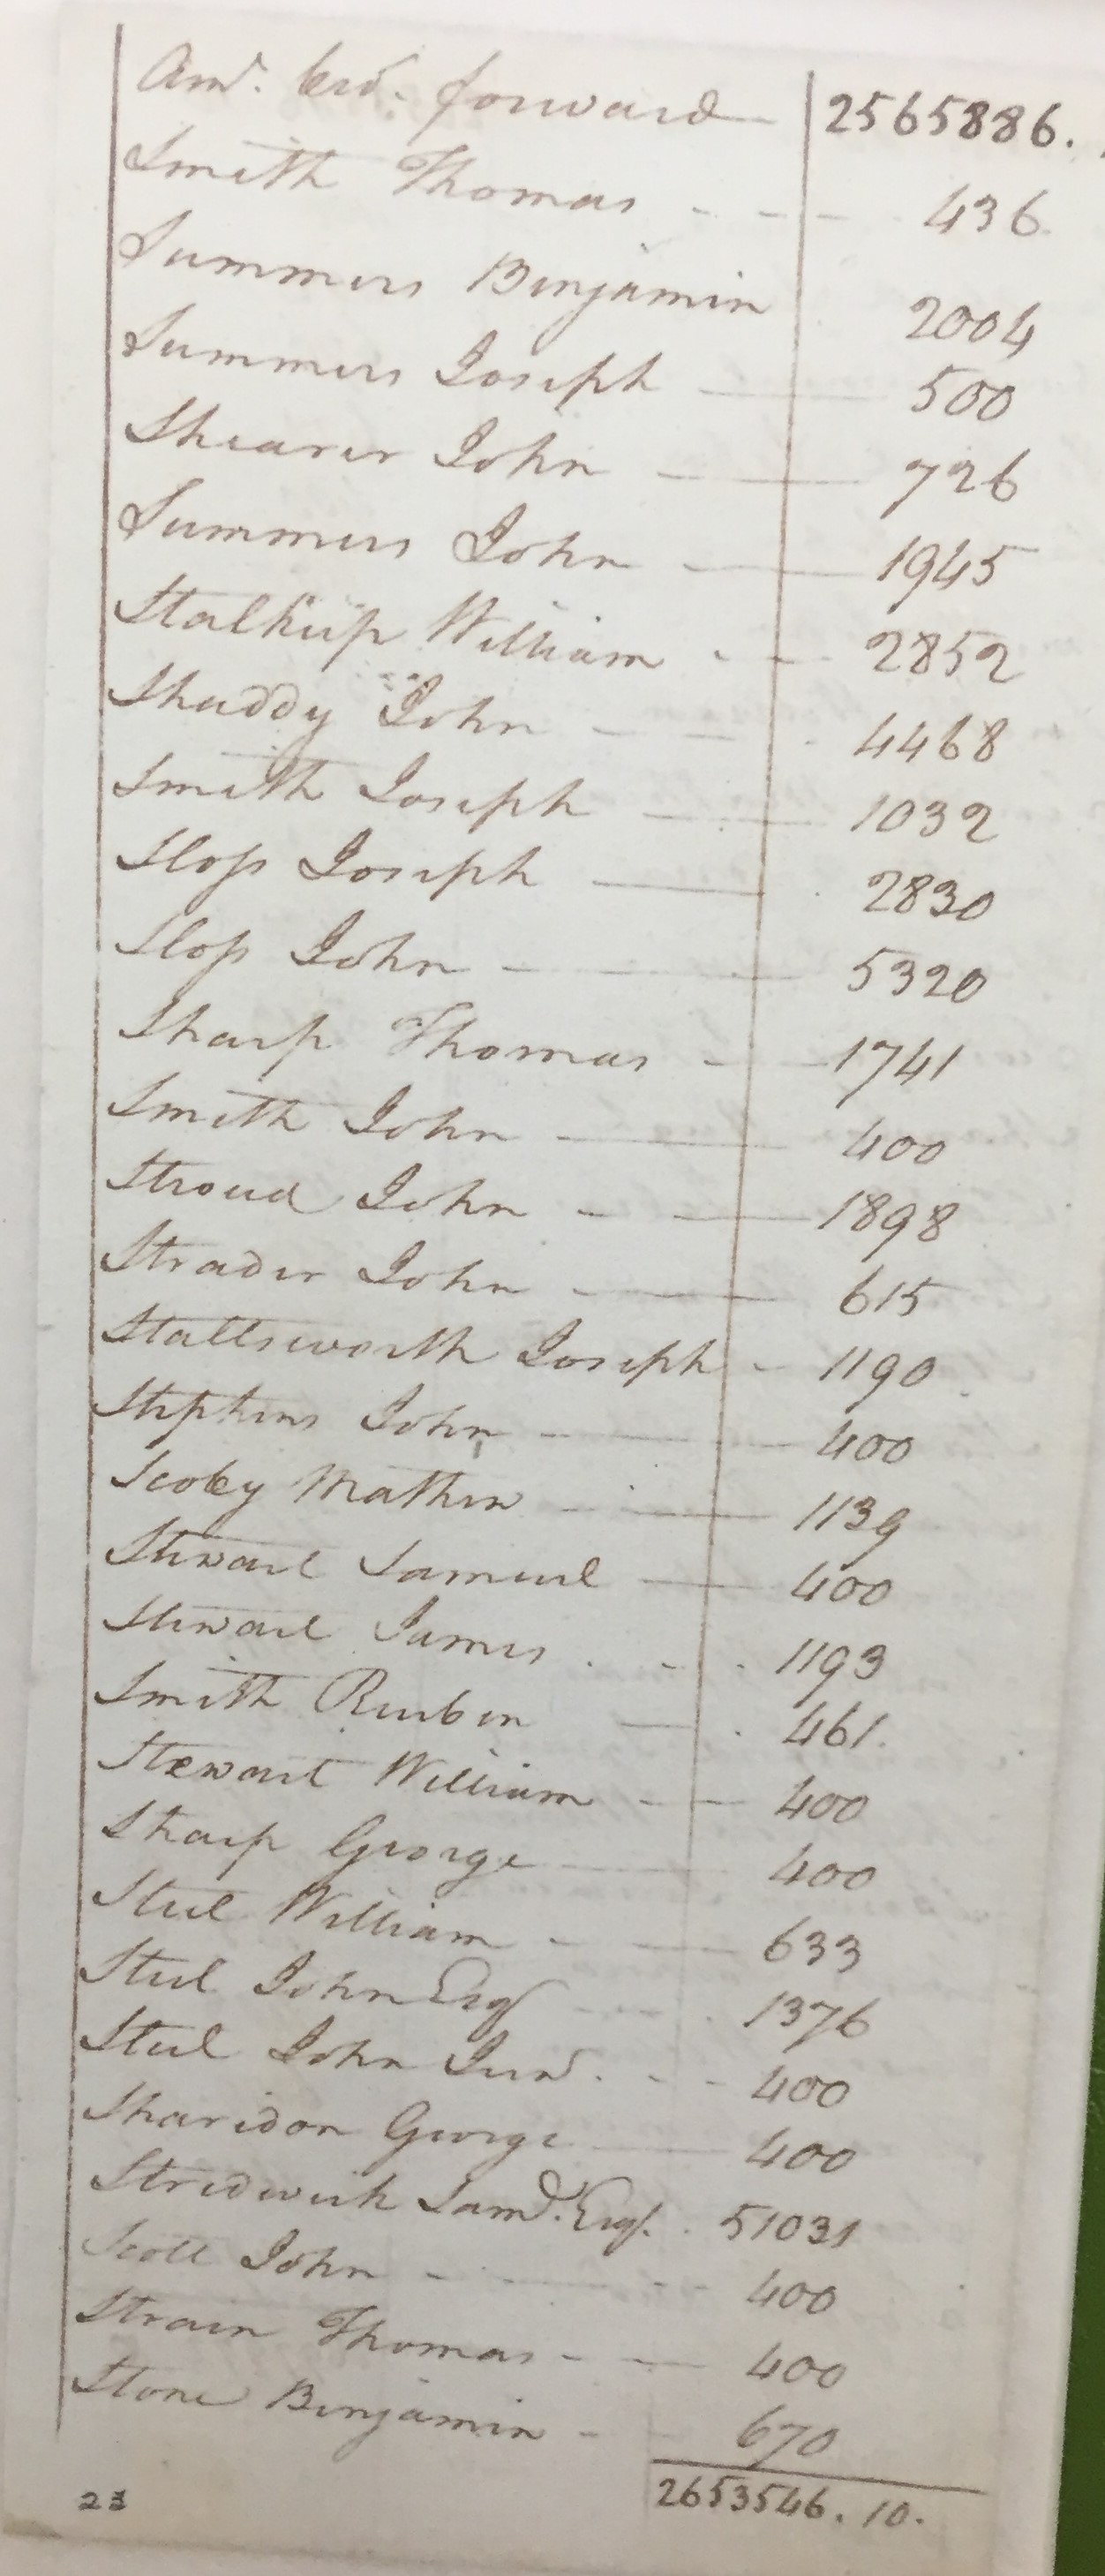 Amt. brd. forward 2565886.
Smith Thomas - - - 436
Summers Benjamin 2004
Summers Joseph — 500
Shearer John — 726
Summers John — 1945
Stalkup William - - 2852
Shaddy John - - 4468
Smith Joseph — 1032
Sloss Joseph — 2830
Sloss John - — 5320
Sharp Thomas - - 1741
Smith John — 400
Stroud John - — 1898
Strader John - — 615
Stallsworth Joseph - 1190
Stephens John - — 400
Scoby Mathew - — 1139
Stewart Samuel — 400
Stewart James . - . 1193
Smith Reuben — . 461.
Stewart William - - 400
Sharp George — 400
Steel William - — 633
Steel John Esqr - - . 1376
Steel John Junr. - - 400
Sharidon George — 400
Stredwick Saml. Esqr. . 51031
Scott John - - - 400
Strain Thomas - — 400
Stone Benjamin - - 670
2653546. 10.
23